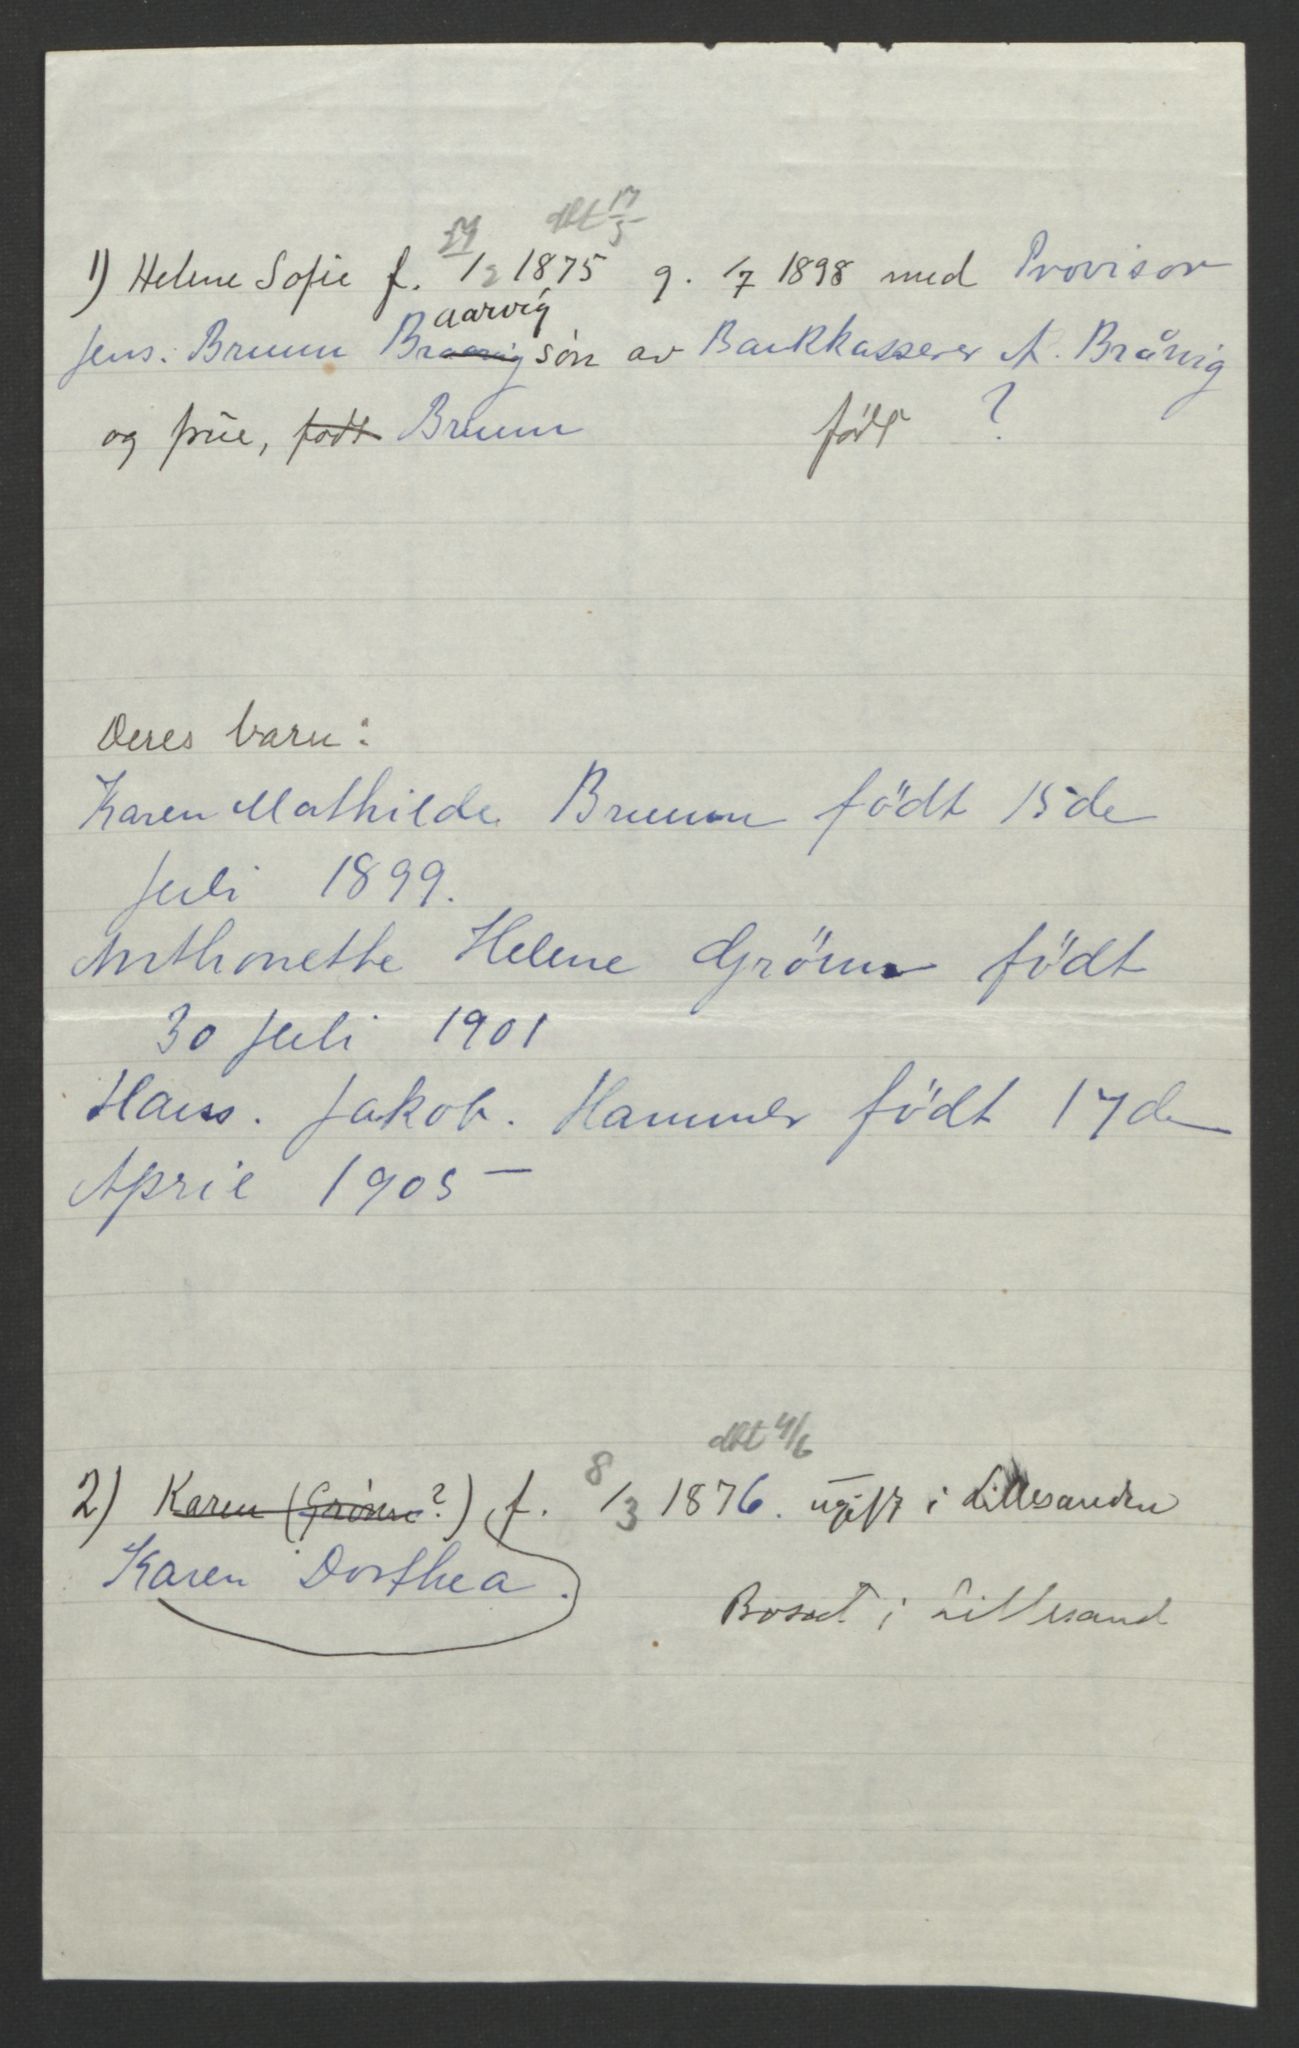 døbt 17/5
1) Helene Sofie f. 1/2 1875 g. 1/7 1898 med Provisor
aarvig
Jens. Bruun Braarvig søn av Bankkasserer A. Brårvig
og frue, født Bruun født ?
Deres barn:
Karen Mathilde Bruun födt 15de
Juli 1899.
Anthonethe Helene Grönn födt
30 Juli 1901
Hans. Jakob. Hammer födt 17de
April 1905 –
dbt 4/6
2) Karen (Grönn?) f. 8/3 1876. ugift i Lillesanden
Karen Dorthea.
Bosat i Lillesand